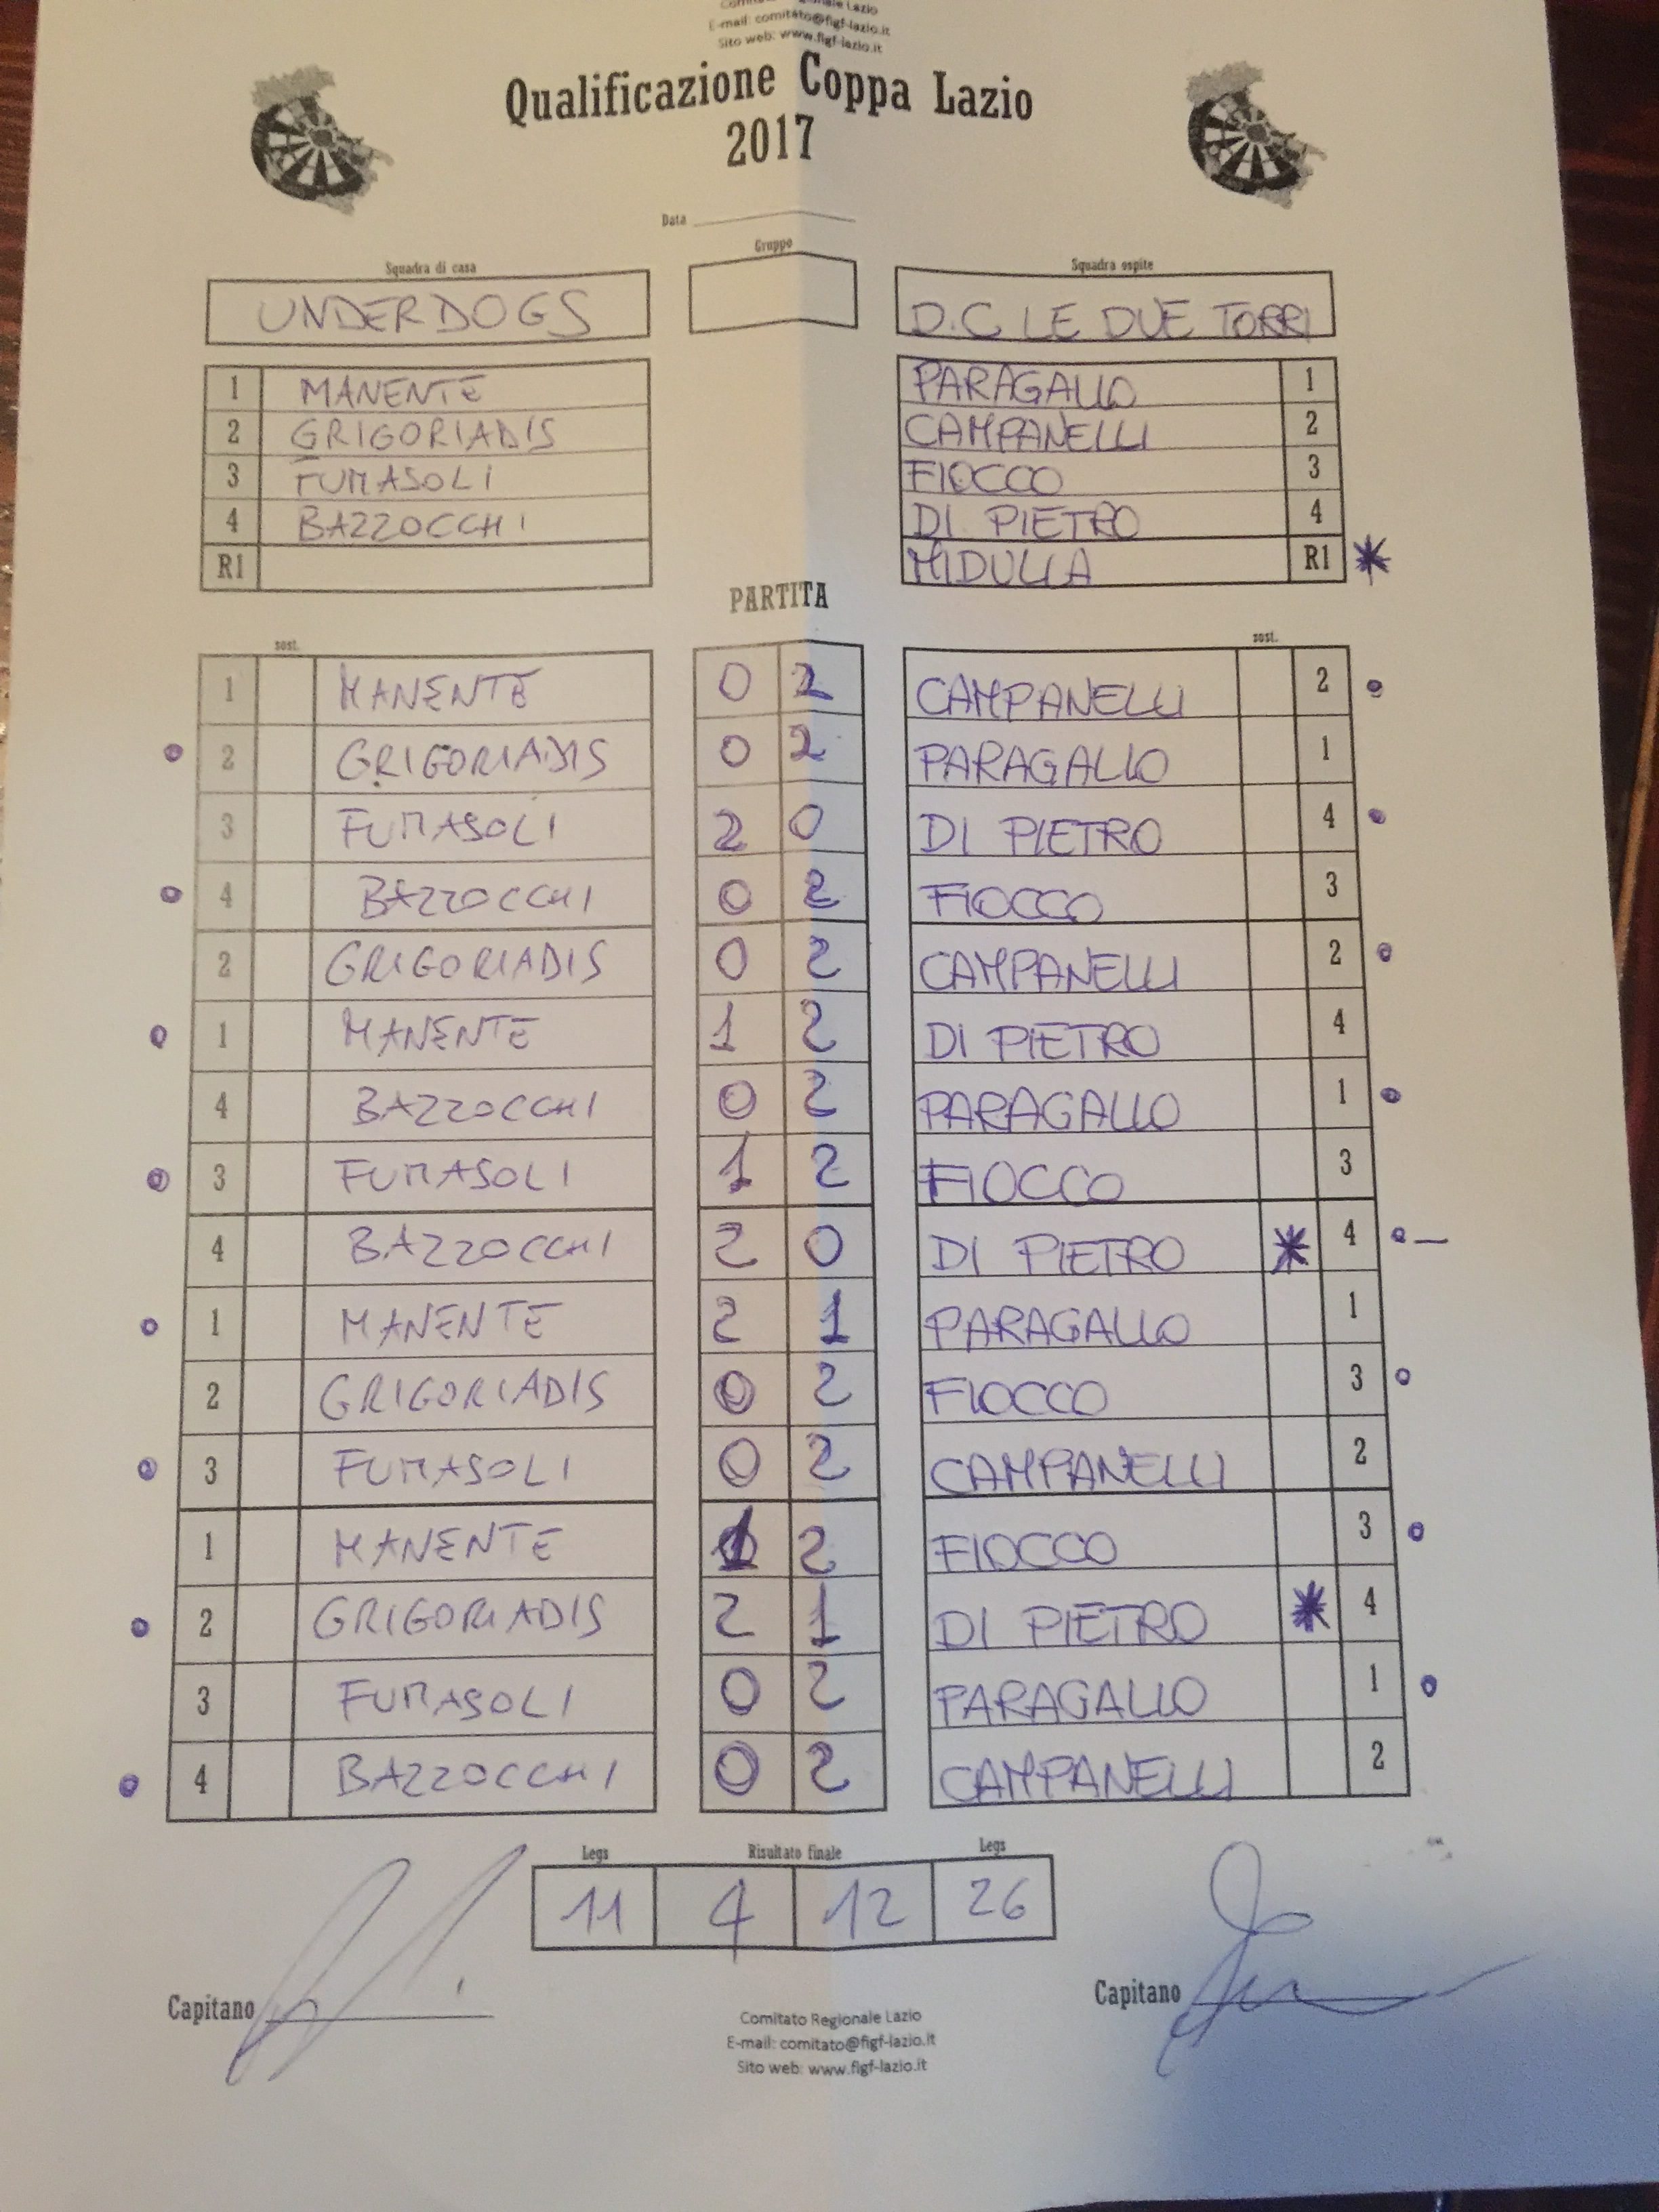 Comitato Regionale Lazio
E-mail: comitato@figf-lazio.it
Sito web: www.figf-lazio.it
Qualificazione Coppa Lazio
2017
Data
Squadra di casa Gruppo Squadra ospite
UNDERDOGS D.C LE DUE TORRI
1 MANENTE PARAGALLO 1
2 GRIGORIADIS CAMPANELLI 2
3 FUMASOLI FIOCCO 3
4 BAZZOCCHI DI PIETRO 4
R1 MIDULLA R1 *
PARTITA
sost. sost.
1 MANENTE 0 2 CAMPANELLI 2
2 GRIGORIADIS 0 2 PARAGALLO 1
3 FUMASOLI 2 0 DI PIETRO 4
4 BAZZOCCHI 0 2 FIOCCO 3
2 GRIGORIADIS 0 2 CAMPANELLI 2
1 MANENTE 1 2 DI PIETRO 4
4 BAZZOCCHI 0 2 PARAGALLO 1
3 FUMASOLI 1 2 FIOCCO 3
4 BAZZOCCHI 2 0 DI PIETRO * 4
1 MANENTE 2 1 PARAGALLO 1
2 GRIGORIADIS 0 2 FIOCCO 3
3 FUMASOLI 0 2 CAMPANELLI 2
1 MANENTE 1 2 FIOCCO 3
2 GRIGORIADIS 2 1 DI PIETRO * 4
3 FUMASOLI 0 2 PARAGALLO 1
4 BAZZOCCHI 0 2 CAMPANELLI 2
Legs Risultato finale Legs
11 4 12 26
Capitano Capitano
Comitato Regionale Lazio
E-mail: comitato@figf-lazio.it
Sito web: www.figf-lazio.it